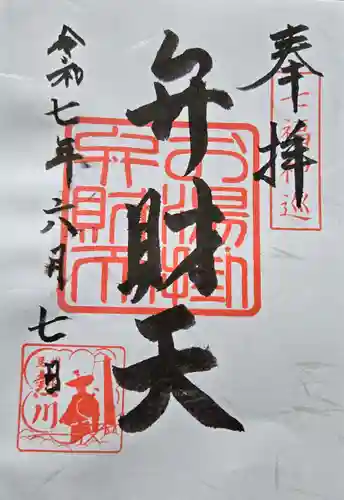 奉拝
七福神巡
弁財天
お湯掛
弁財天
令和七年六月七日
川